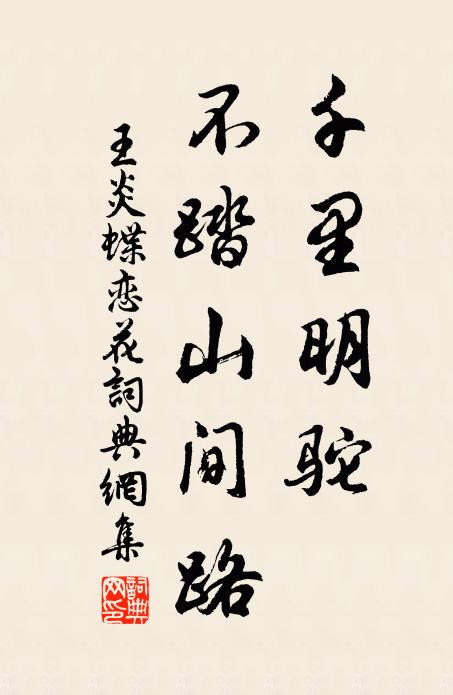 千里明驼
不踏山间路
王炎蝶恋花詞典網集
詞典网印